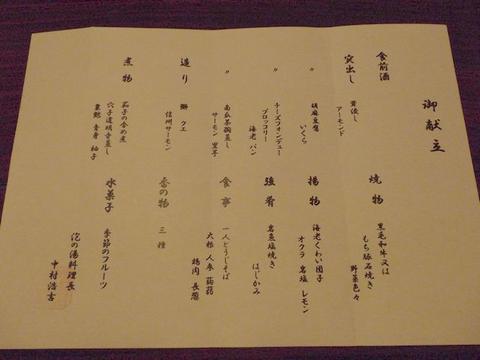 御献立
食前酒
突出し
黄渡し
アーモンド
〃
胡麻豆腐
いくら
〃
チーズフォンデュー
ブロッコリー
海老 パン
〃
南瓜茶碗蒸し
サーモン 里芋
造り
鰤 クエ
信州サーモン
煮物
茄子の含め煮
穴子道明寺蒸し
柚子
焼物
黒毛和牛又は
もち豚石焼き
野菜色々
揚物
海老くわい団子
オクラ 岩塩 レモン
強肴
岩魚塩焼き
はじかみ
食事
一人どうじそば
大根 人参 蒟蒻
鶏肉 長葱
香の物
三種
水菓子
季節のフルーツ
泡の湯料理長
中村浩吉